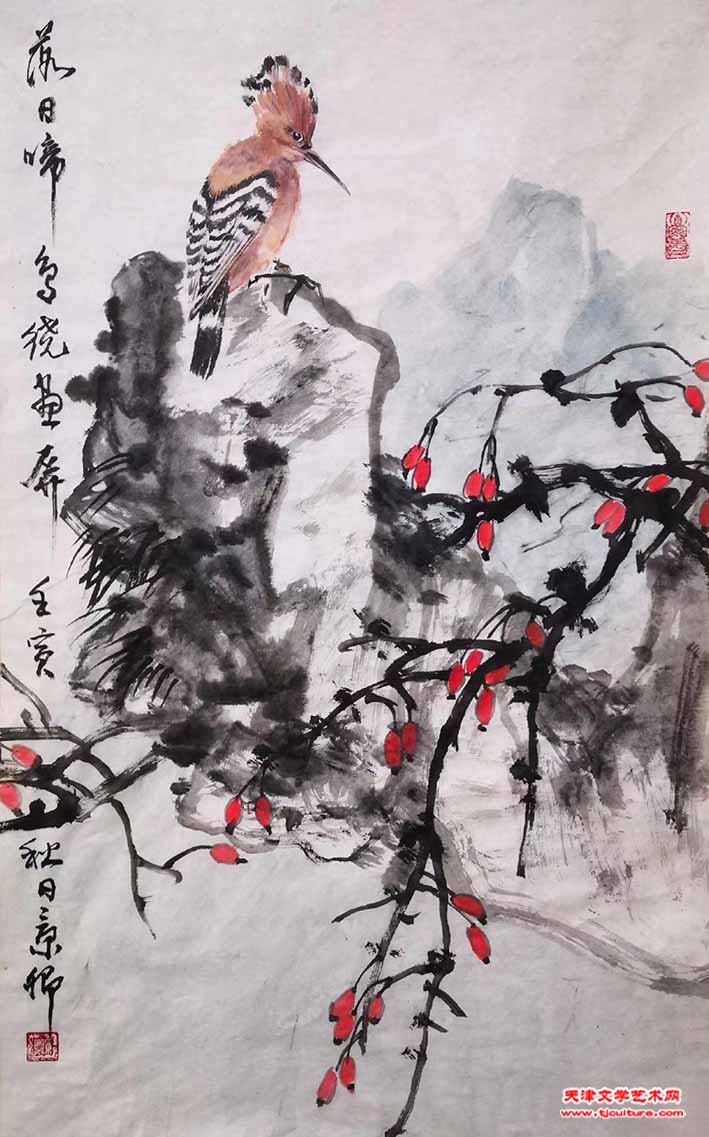 落日啼鸟绕画屏 壬寅秋日景卿
天津文学艺术网
www.tjculture.com